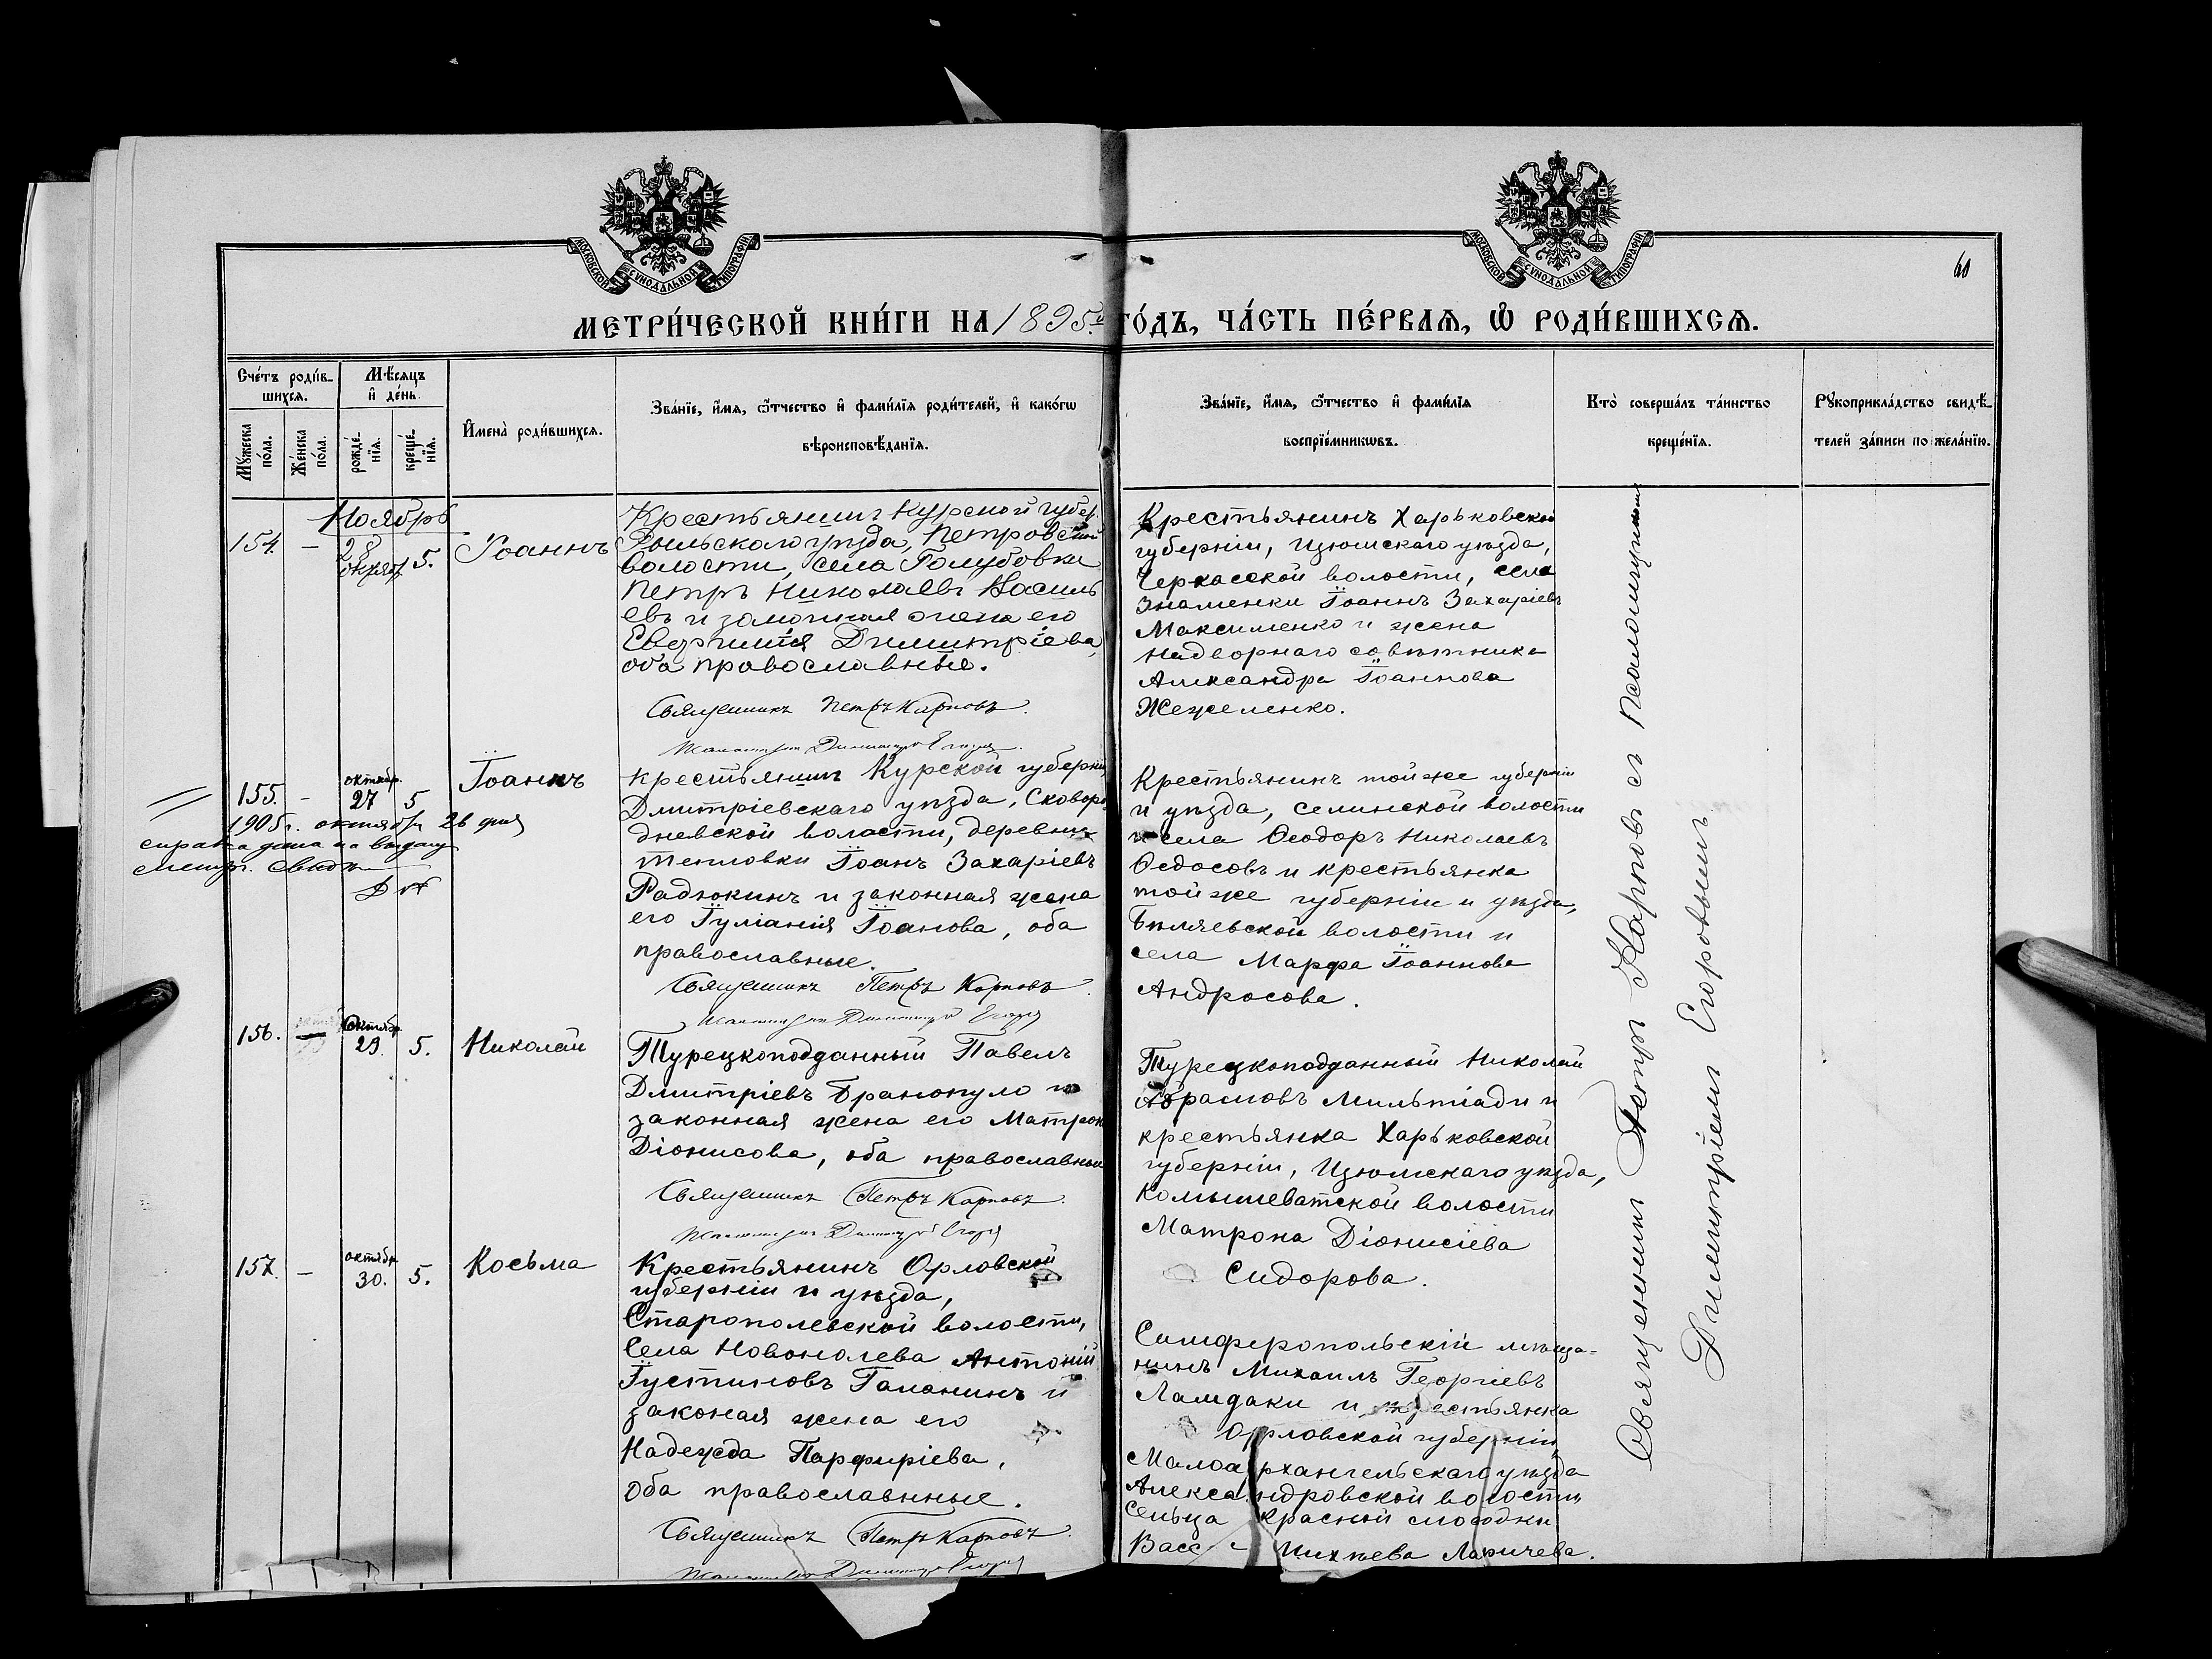 МОСКОВСКОЙ СУНОДАЛЬНОЙ ТИПОГРАФІИ
МОСКОВСКОЙ СУНОДАЛЬНОЙ ТИПОГРАФІИ
60
МЕТРИ́ЧЕСКОЙ КНИ́ГИ НА 1895.й ГО́ДЪ, ЧА́СТЬ ПЕ́РВАѦ, Ѡ҆ РОДИ́ВШИХСѦ.
Сче́тъ роди́в-
шихсѧ.
Мѣ́сѧцъ
и҆ де́нь.
Мꙋ́жеска
по́ла.
Же́нска
по́ла.
рожде́-
нїѧ.
креще́-
нїѧ.
И҆мена̀ роди́вшихсѧ.
Зва́нїе, и҆́мѧ, ѻ҆́тчество и҆ фами́лїѧ роди́телей, и҆ како́гѡ
вѣроисповѣ́данїѧ.
Зва́нїе, и҆́мѧ, ѻ҆́тчество и҆ фами́лїѧ
воспрїе́мникѡвъ.
Кто̀ соверша́лъ та́инство
креще́нїѧ.
Рꙋкоприкла́дство свидѣ́-
телей за́писи по жела́нїю.
Ноябрь
154. - 28 октяб. 5. Іоаннъ
Крестьянинъ Курской губер.
Рыльскаго уѣзда, Петровской
волости, села Голубовки
Петръ Николаевъ Василь
евъ и законная жена его
Димитріева,
оба православные.
Священникъ Петръ Карповъ.
Димитрій Егоровъ
Крестьянинъ Харьковской
губерніи, Изюмскаго уѣзда,
Черкасской волости, села
Знаменки Іоаннъ Захаріевъ
Максименко и жена
надворнаго совѣтника
Александра Іоаннова
Жежеленко.
155. - октябр. 27 5 Іоаннъ
1905г. октября 26 дня
справка дана на выдачу
метр. свид.
крестьянинъ Курской губерніи
Дмитріевскаго уѣзда, Сковоро
дневской волости, деревни
Тепловки Іоанъ Захаріевъ
Радюкинъ и законная жена
его Іуліанія Іоанова, оба
православные.
Священникъ Петръ Карповъ.
Димитрій Егоровъ
Крестьянинъ тойже губерніи
и уѣзда, селинской волости
и села Ѳеодоръ Николаевъ
Ѳедосовъ и крестьянка
тойже губерніи и уѣзда,
Бѣляевской волости и
села Марфа Іоаннова
Андросова.
156. Октябр. 29. 5. Николай
Турецкоподданный Павелъ
Дмитріевъ Франопуло и
законная жена его Матрона
Діонисова, оба православные
Священникъ Петръ Карповъ.
Димитрій Егоровъ
Турецкоподданный Николай
Абрамовъ Мильтіади и
крестьянка Харьковской
губерніи, Изюмскаго уѣзда,
Комышеватской волости
Матрона Діонисіева
Сидорова.
157. - октябр. 30. 5. Косьма
Крестьянинъ Орловской
губерніи и уѣзда,
Старополевской волости,
Села Новополева Антоній
Іустиновъ Гапонинъ и
законая жена его
Надежда Парфиріева,
Оба православнные.
Священникъ Петръ Карповъ.
Димитрій Егоровъ
Симферопольскій мѣща-
нинъ Михаилъ Георгіевъ
Ламдаки и крестьянка
Орловской губерніи
Малоархангельскаго уѣзда
Александровской волости,
сельца Красной слободки
Васс Михѣева Ларичева.
Священникъ Петръ Карповъ съ псаломщикомъ
Димитріемъ Егоровымъ